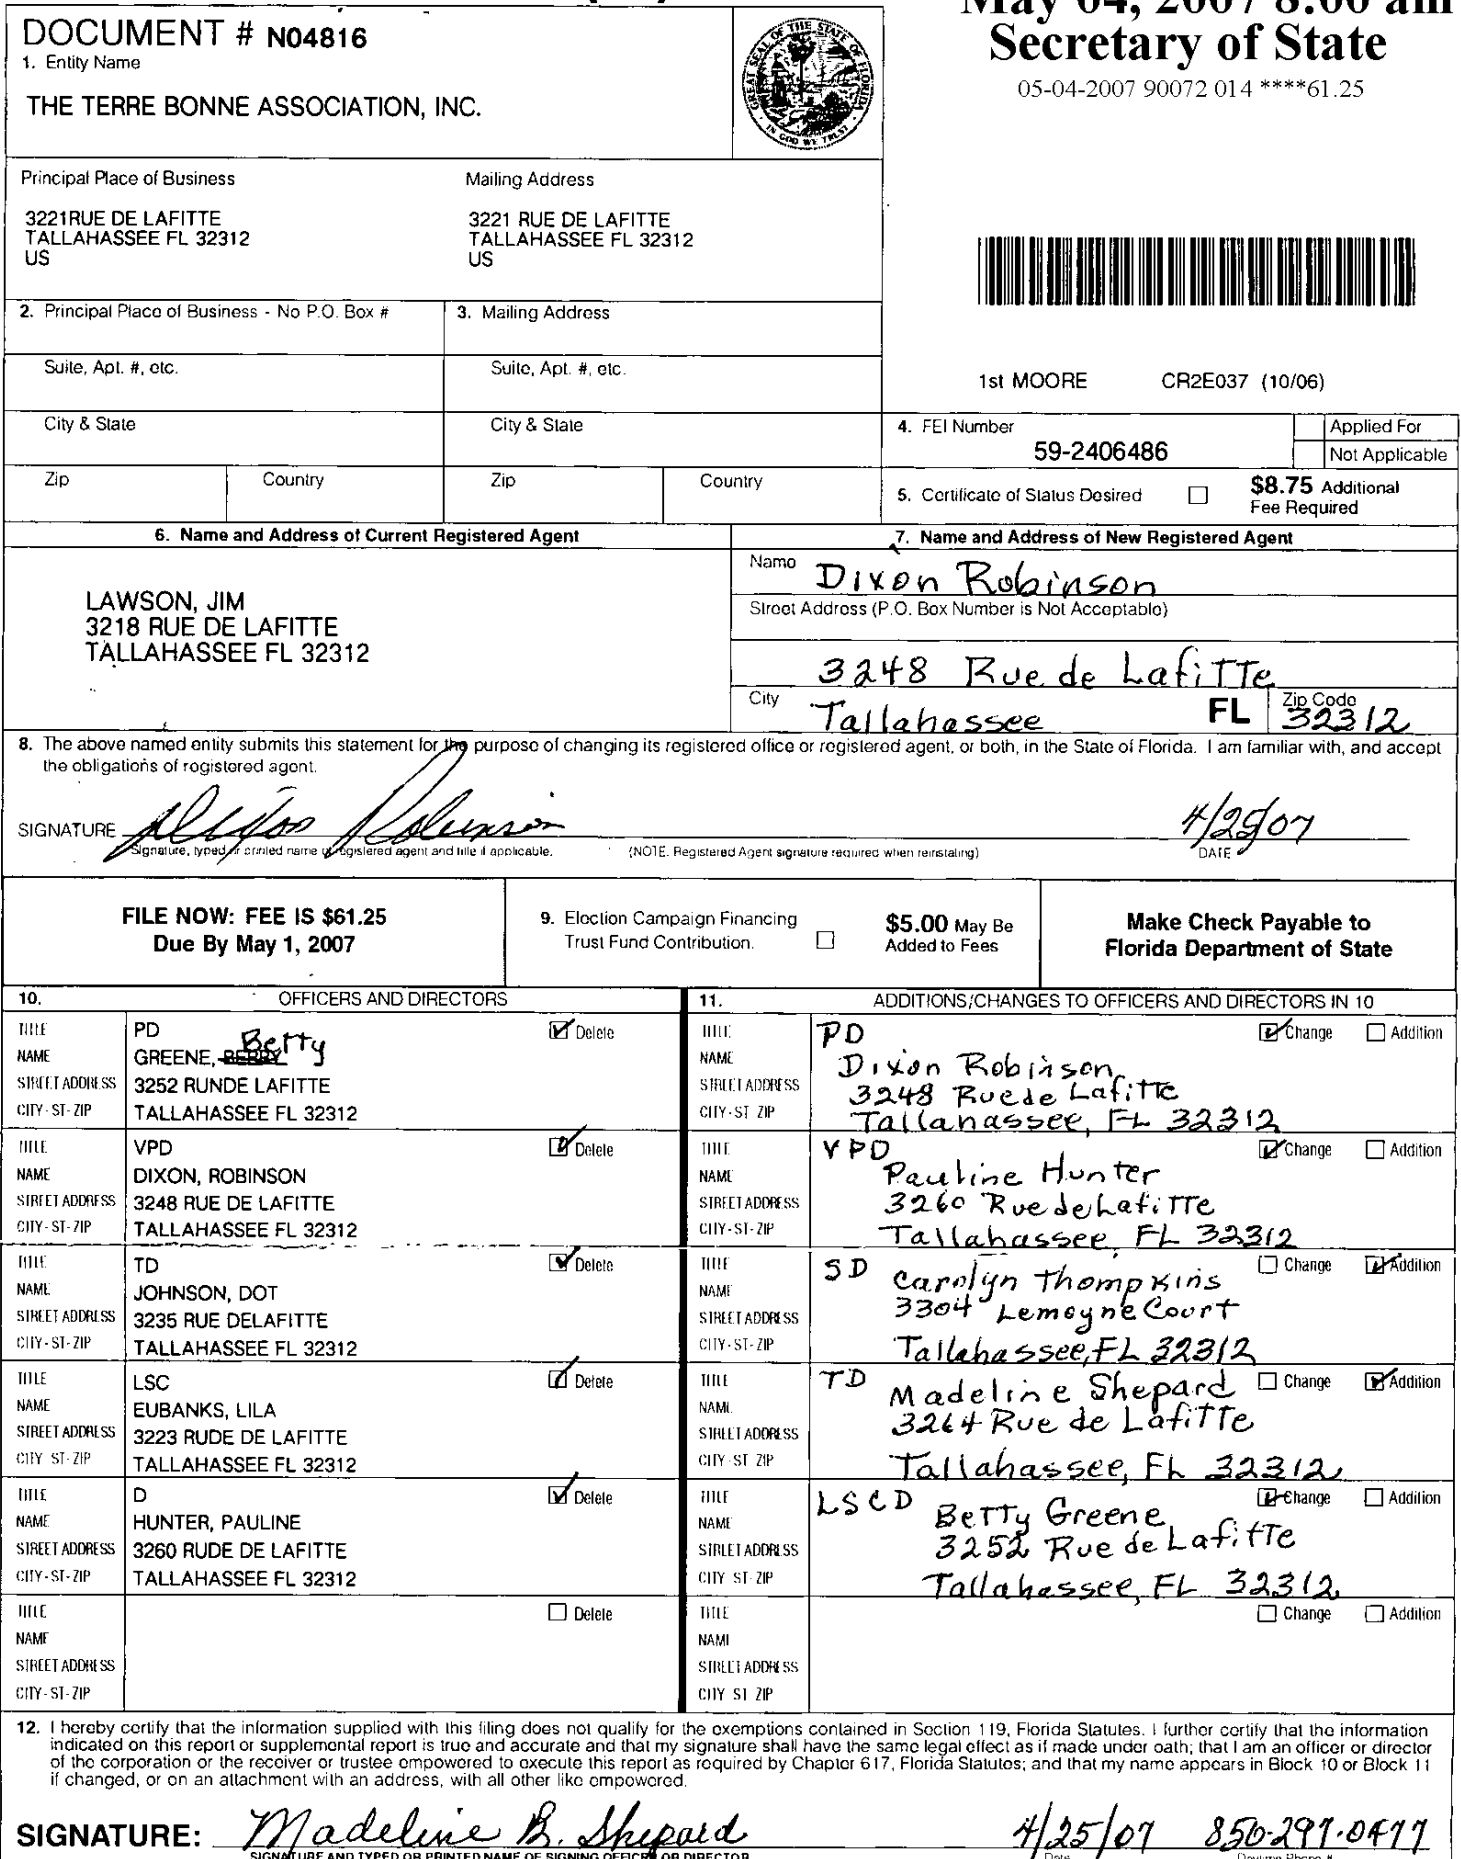 May 04, 2007 8:00 am
Secretary of State
05-04-2007 90072 014 ****61.25
DOCUMENT # N04816
1. Entity Name
THE TERRE BONNE ASSOCIATION, INC.
GREAT SEAL OF THE STATE OF FLORIDA
IN GOD WE TRUST
Principal Place of Business
3221RUE DE LAFITTE
TALLAHASSEE FL 32312
US
Mailing Address
3221 RUE DE LAFITTE
TALLAHASSEE FL 32312
US
2. Principal Place of Business - No P.O. Box #
3. Mailing Address
Suite, Apt. #, etc.
Suite, Apt. #, etc.
1st MOORE CR2E037 (10/06)
City & State
City & State
4. FEI Number
59-2406486
Applied For
Not Applicable
Zip Country
Zip Country
5. Certificate of Status Desired
$8.75 Additional
Fee Required
6. Name and Address of Current Registered Agent
LAWSON, JIM
3218 RUE DE LAFITTE
TALLAHASSEE FL 32312
7. Name and Address of New Registered Agent
Name Dixon Robinson
Street Address (P.O. Box Number is Not Acceptable)
3248 Rue de Lafitte
City Tallahassee FL Zip Code 32312
8. The above named entity submits this statement for the purpose of changing its registered office or registered agent, or both, in the State of Florida. I am familiar with, and accept
the obligations of registered agent.
SIGNATURE Dixon Robinson 4/25/07
Signature, typed or printed name of registered agent and title if applicable. (NOTE. Registered Agent signature required when reinstating) DATE
FILE NOW: FEE IS $61.25
Due By May 1, 2007
9. Election Campaign Financing
Trust Fund Contribution.
$5.00 May Be
Added to Fees
Make Check Payable to
Florida Department of State
10. OFFICERS AND DIRECTORS
TITLE PD Delete
NAME GREENE, BERRY Betty
STREET ADDRESS 3252 RUNDE LAFITTE
CITY-ST-ZIP TALLAHASSEE FL 32312
TITLE VPD Delete
NAME DIXON, ROBINSON
STREET ADDRESS 3248 RUE DE LAFITTE
CITY-ST-ZIP TALLAHASSEE FL 32312
TITLE TD Delete
NAME JOHNSON, DOT
STREET ADDRESS 3235 RUE DELAFITTE
CITY-ST-ZIP TALLAHASSEE FL 32312
TITLE LSC Delete
NAME EUBANKS, LILA
STREET ADDRESS 3223 RUDE DE LAFITTE
CITY-ST-ZIP TALLAHASSEE FL 32312
TITLE D Delete
NAME HUNTER, PAULINE
STREET ADDRESS 3260 RUDE DE LAFITTE
CITY-ST-ZIP TALLAHASSEE FL 32312
TITLE Delete
NAME
STREET ADDRESS
CITY-ST-ZIP
11. ADDITIONS/CHANGES TO OFFICERS AND DIRECTORS IN 10
TITLE PD Change Addition
NAME Dixon Robinson
STREET ADDRESS 3248 Rue de Lafitte
CITY-ST-ZIP Tallahassee, FL 32312
TITLE VPD Change Addition
NAME Pauline Hunter
STREET ADDRESS 3260 Rue de Lafitte
CITY-ST-ZIP Tallahassee, FL 32312
TITLE SD Change Addition
NAME Carolyn Thompkins
STREET ADDRESS 3304 Lemoyne Court
CITY-ST-ZIP Tallahassee, FL 32312
TITLE TD Change Addition
NAME Madeline Shepard
STREET ADDRESS 3264 Rue de Lafitte
CITY-ST-ZIP Tallahassee, FL 32312
TITLE LSCD Change Addition
NAME Betty Greene
STREET ADDRESS 3252 Rue de Lafitte
CITY-ST-ZIP Tallahassee, FL 32312
TITLE Change Addition
NAME
STREET ADDRESS
CITY-ST-ZIP
12. I hereby certify that the information supplied with this filing does not qualify for the exemptions contained in Section 119, Florida Statutes. I further certify that the information
indicated on this report or supplemental report is true and accurate and that my signature shall have the same legal effect as if made under oath; that I am an officer or director
of the corporation or the receiver or trustee empowered to execute this report as required by Chapter 617, Florida Statutes; and that my name appears in Block 10 or Block 11
if changed, or on an attachment with an address, with all other like empowered.
SIGNATURE: Madeline B. Shepard 4/25/07 850-297-0477
SIGNATURE AND TYPED OR PRINTED NAME OF SIGNING OFFICER OR DIRECTOR Date Daytime Phone #